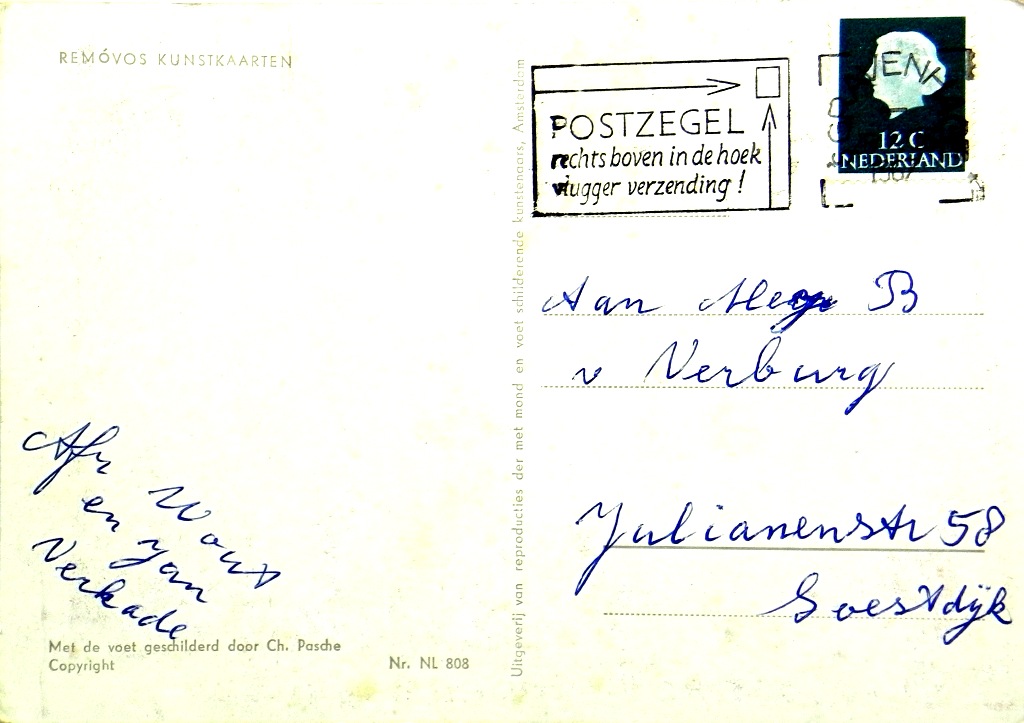 REMÓVOS KUNSTKAARTEN
POSTZEGEL
rechts boven in de hoek
vlugger verzending!
12 C
NEDERLAND
Aan Mej B
v Verburg
Julianenstr 58
Soestdijk
Afr Wout
en Jan
Verkade
Met de voet geschilderd door Ch. Pasche
Copyright
Nr. NL 808
Uitgeverij van reproducties der met mond en voet schilderende kunstenaars, Amsterdam